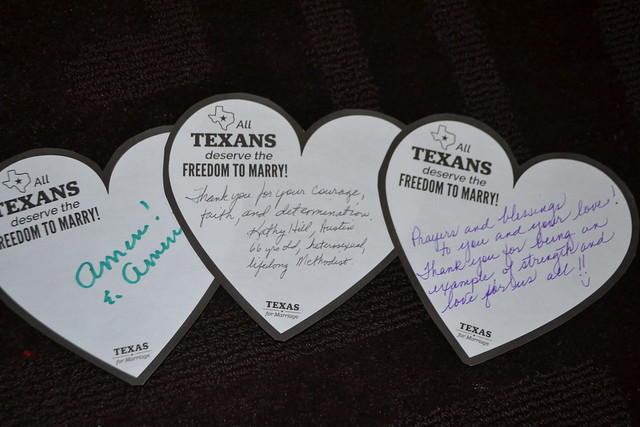 All
TEXANS
deserve the
FREEDOM TO MARRY!
Amen!
& Amen
TEXAS
for Marriage
All
TEXANS
deserve the
FREEDOM TO MARRY!
Thank you for your courage,
faith, and determination.
Kathy
66 yr old, heterosexual,
lifelong Methodist.
TEXAS
for Marriage
All
TEXANS
deserve the
FREEDOM TO MARRY!
Prayers and blessings
to you and your love!
Thank you for being an
example of strength and
love for us all!!
TEXAS
for Marriage